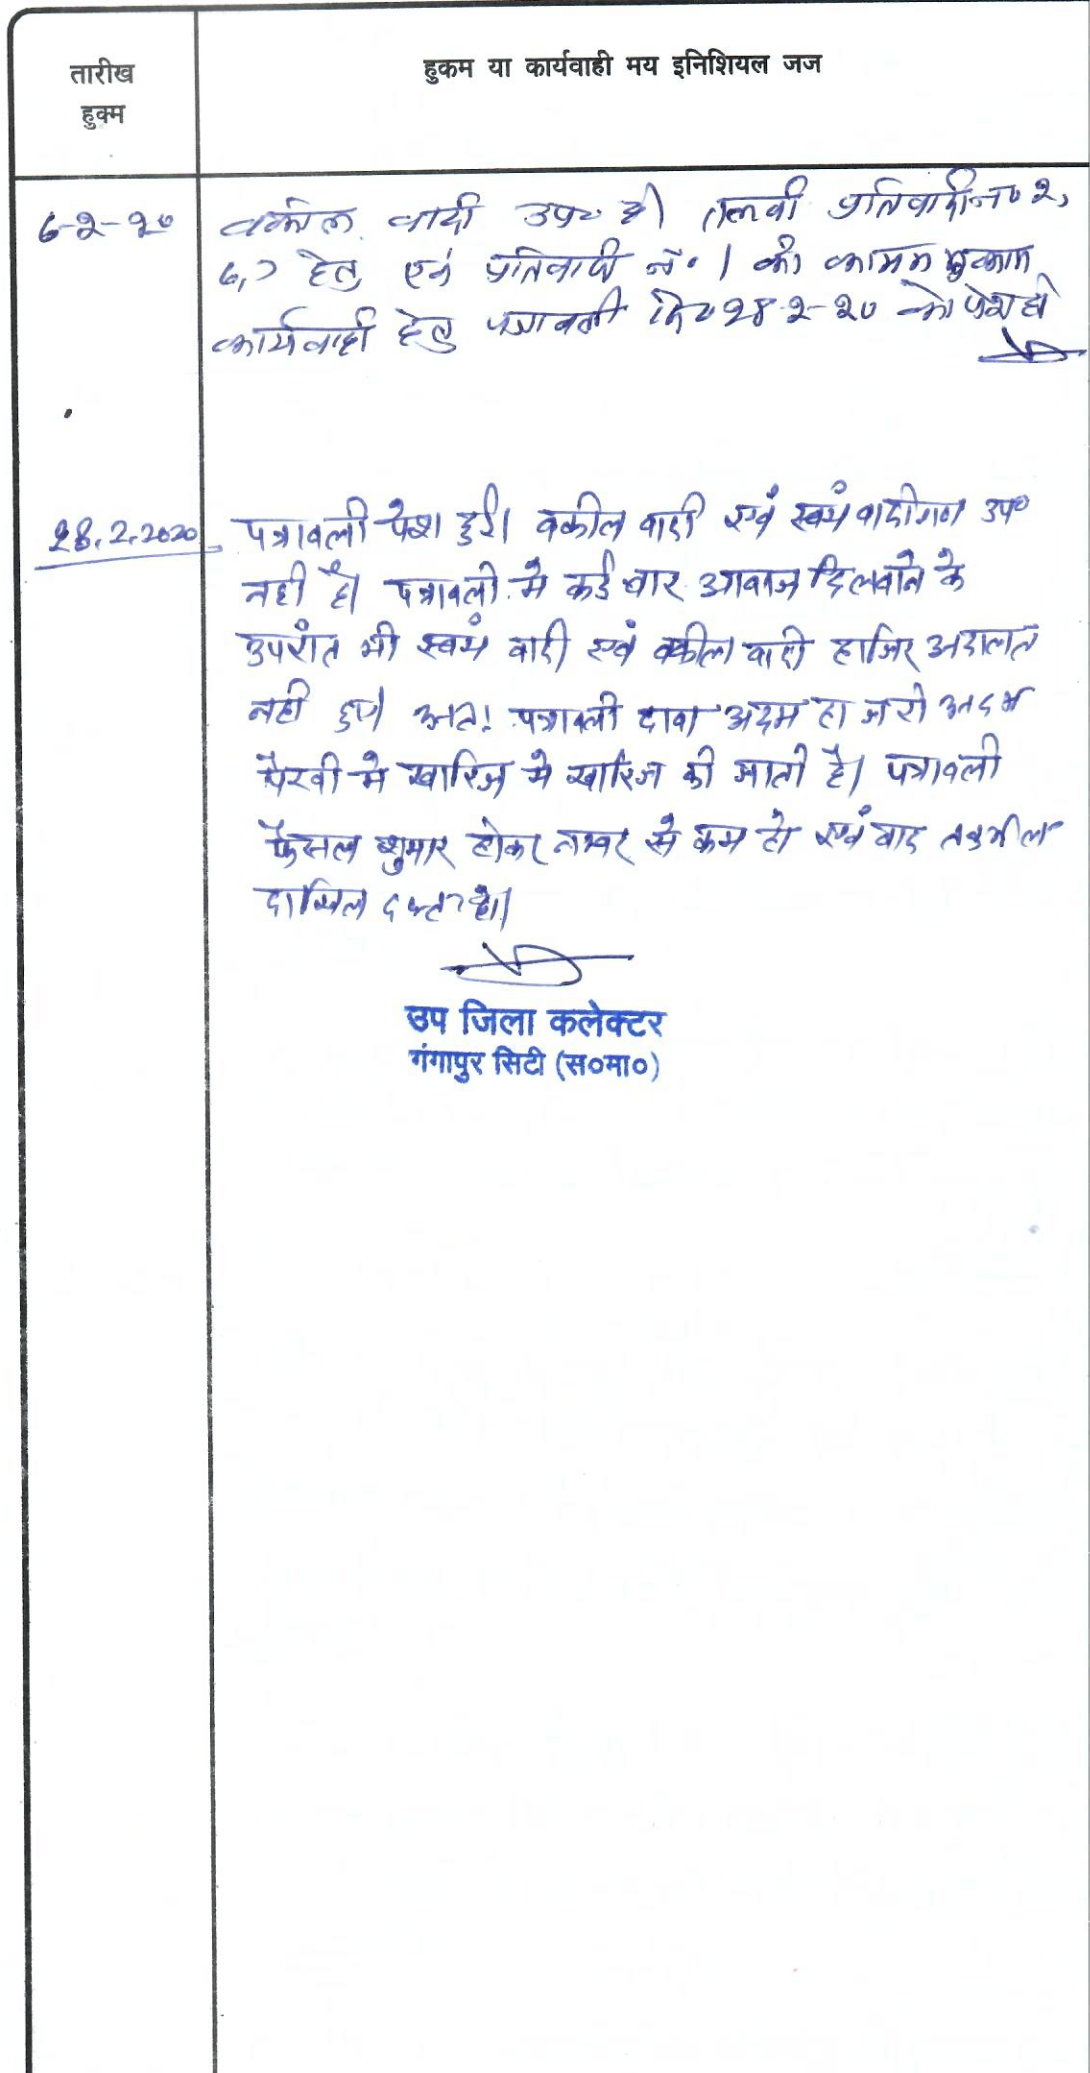 तारीख
हुक्म
हुकम या कार्यवाही मय इनिशियल जज
6-2-20
वकील वादी उप० है। तलवी प्रतिवादी न० 2,
6,7 हेतु एवं प्रतिवादी नं० 1 की कायम मुकाम
कार्यवाही हेतु पत्रावली दि० 28-2-20 को पेश हो
28.2.2020
पत्रावली पेश हुई। वकील वादी एवं स्वयं वादीगण उप०
नही है। पत्रावली मे कई बार आवाज दिलवाने के
उपरांत भी स्वयं वादी एवं वकील वादी हाजिर अदालत
नही हुए। अतः पत्रावली दावा अदम हाजरी अदम
पैरवी मे खारिज मे खारिज की जाती है। पत्रावली
फैसल शुमार होकर नम्बर से कम हो एवं बाद तकमील
दाखिल दफ्तर हो।
उप जिला कलेक्टर
गंगापुर सिटी (स०मा०)